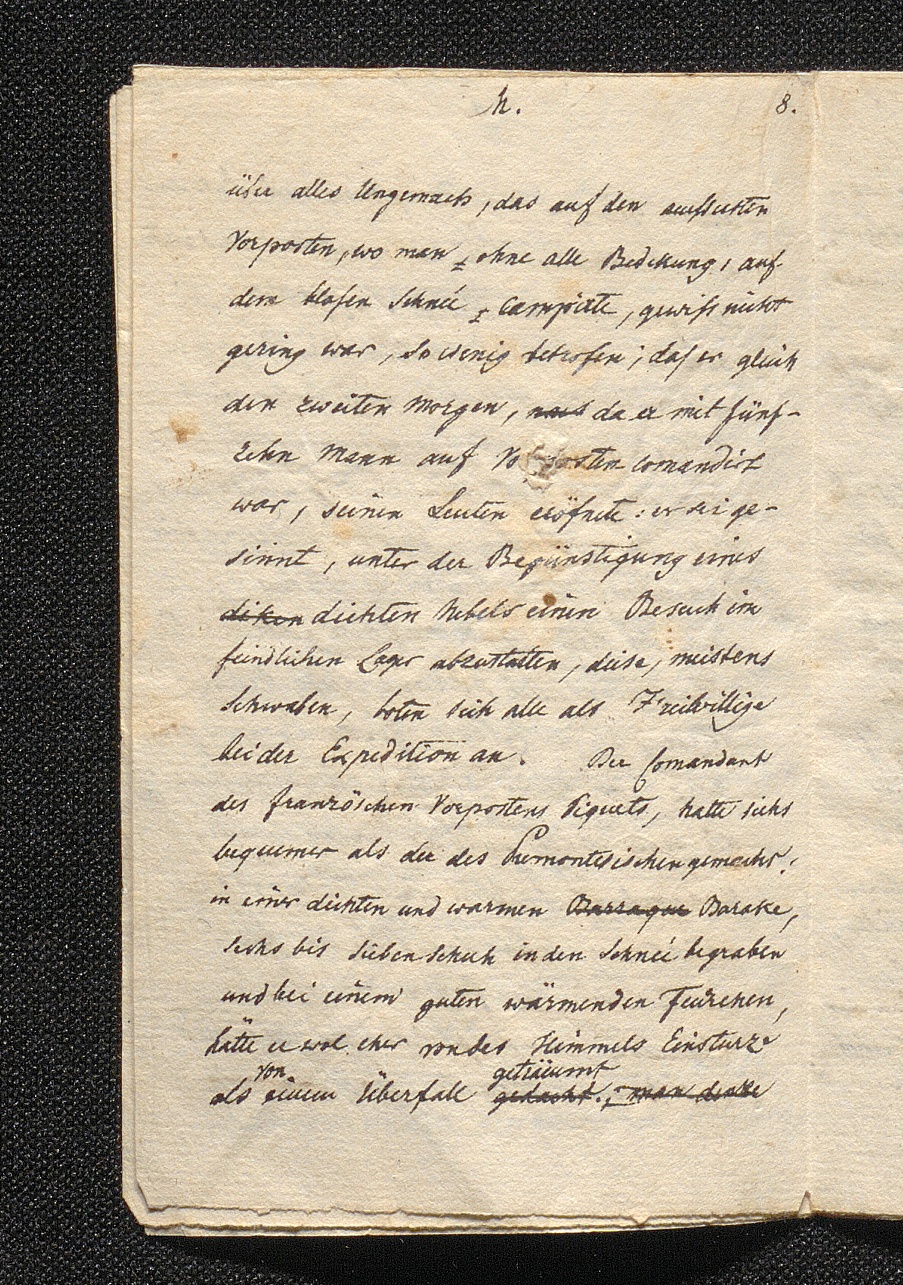 h. 8.
über alles Ungemach, das auf den
Vorposten, wo man ohne alle Bedekung, auf
dem blosen Schneé campirte, gewiss nicht
gering war, so wenig betrofen; das er gleich
den zweiten Morgen, da er mit fünf-
zehn Mann auf Vorposten comandirt
war, seinen Leuten eröfnete: er sei ge-
sinnt, unter der Begünstigung eines
diken dichten Nebels einen Besuch im
feindlichen Lager abzustatten, diese, meistens
Schwaben, boten sich alle als Freiwillige
bei der Expedition an. Der Comandant
des französchen Vorpostens Piquets, hatte sichs
bequemer als der des Piemontesischen gemacht;
in einer dichten und warmen Barraque Barake,
sechs bis sieben Schuh in den Schneé begraben
und bei einem guten wärmenden Feürchen,
hätte er wol eher von des Himmels Einsturze
von geträumt
als einem Überfale gedacht. ; man denke